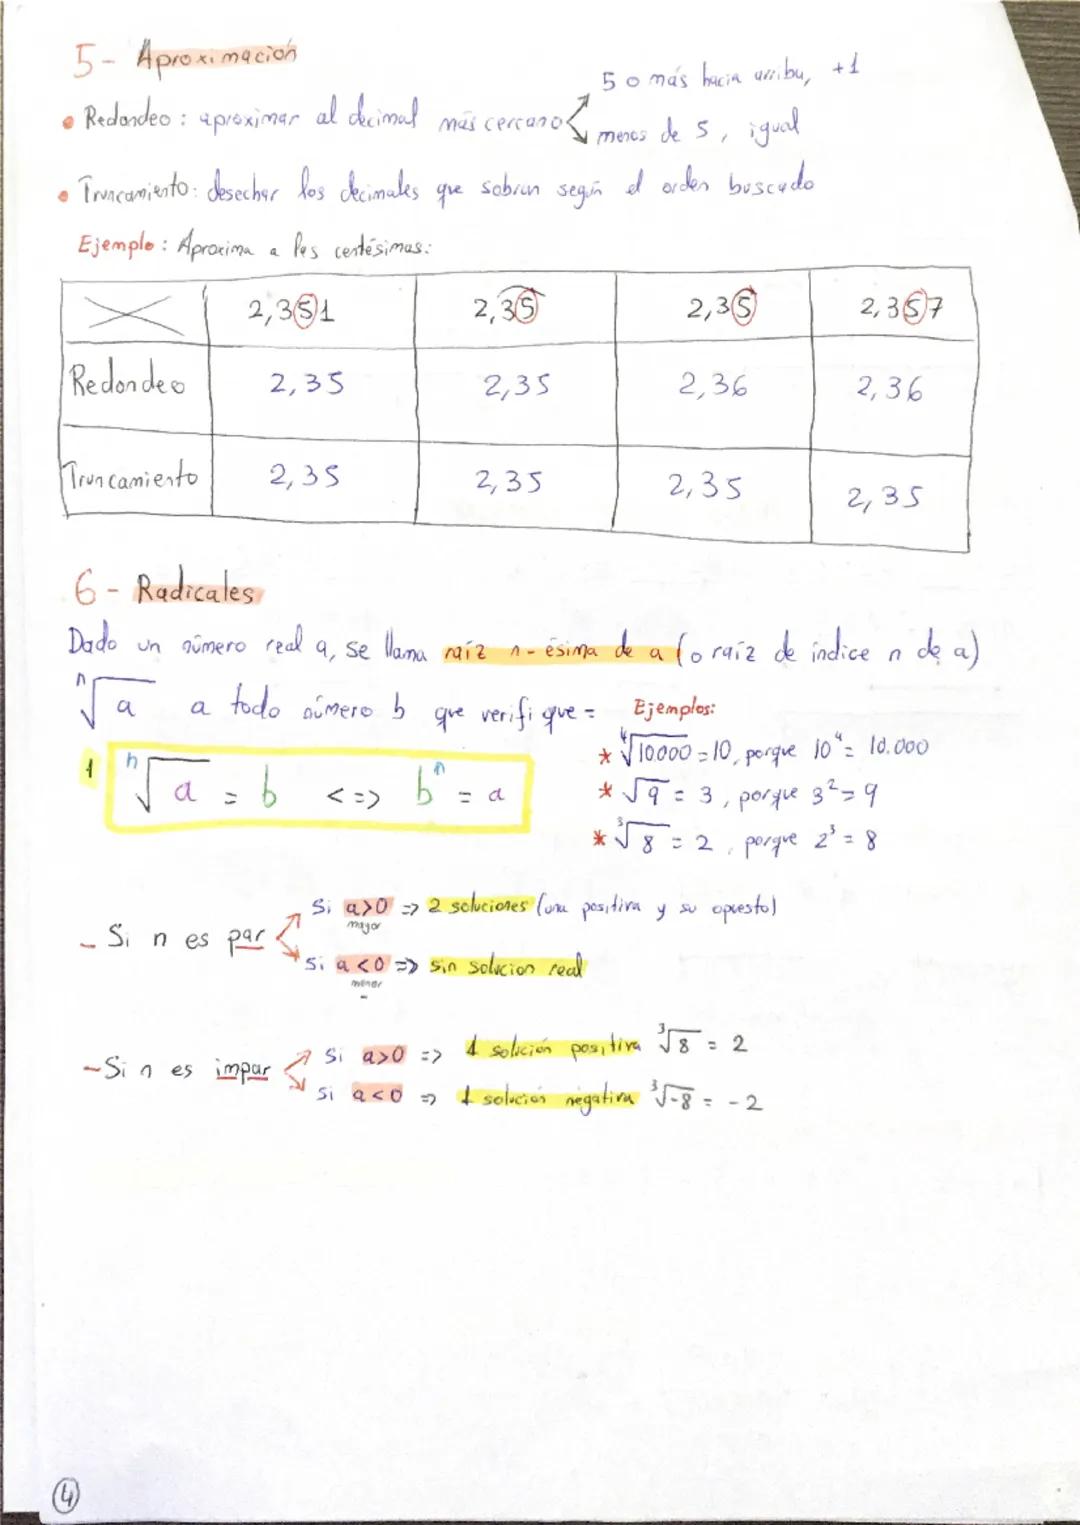 5- Aproximación
5 o más hacia arriba, +1
• Redondeo: aproximar al decimal más cercano
menos de 5, igual
• Truncamiento: desechar los decimales que sobran según el orden buscado
Ejemplo: Aproxima a las centésimas:
2,351 2,35 2,35 2,357
Redondeo 2,35 2,35 2,36 2,36
Truncamiento 2,35 2,35 2,35 2,35
6- Radicales
Dado un número real a, se llama raíz n-ésima de a (o raíz de índice n de a)
ⁿ√a a todo número b que verifique = Ejemplos:
* ⁴√10.000 = 10, porque 10⁴ = 10.000
1 ⁿ√a = b <=> bⁿ = a
* √9 = 3, porque 3² = 9
* ³√8 = 2, porque 2³ = 8
Si a>0 => 2 soluciones (una positiva y su opuesto)
mayor
- Si n es par
Si a<0 => sin solucion real
menor
-
- Si n es impar Si a>0 => 1 solución positiva ³√8 = 2
Si a<0 => 1 solución negativa ³√-8 = -2
4